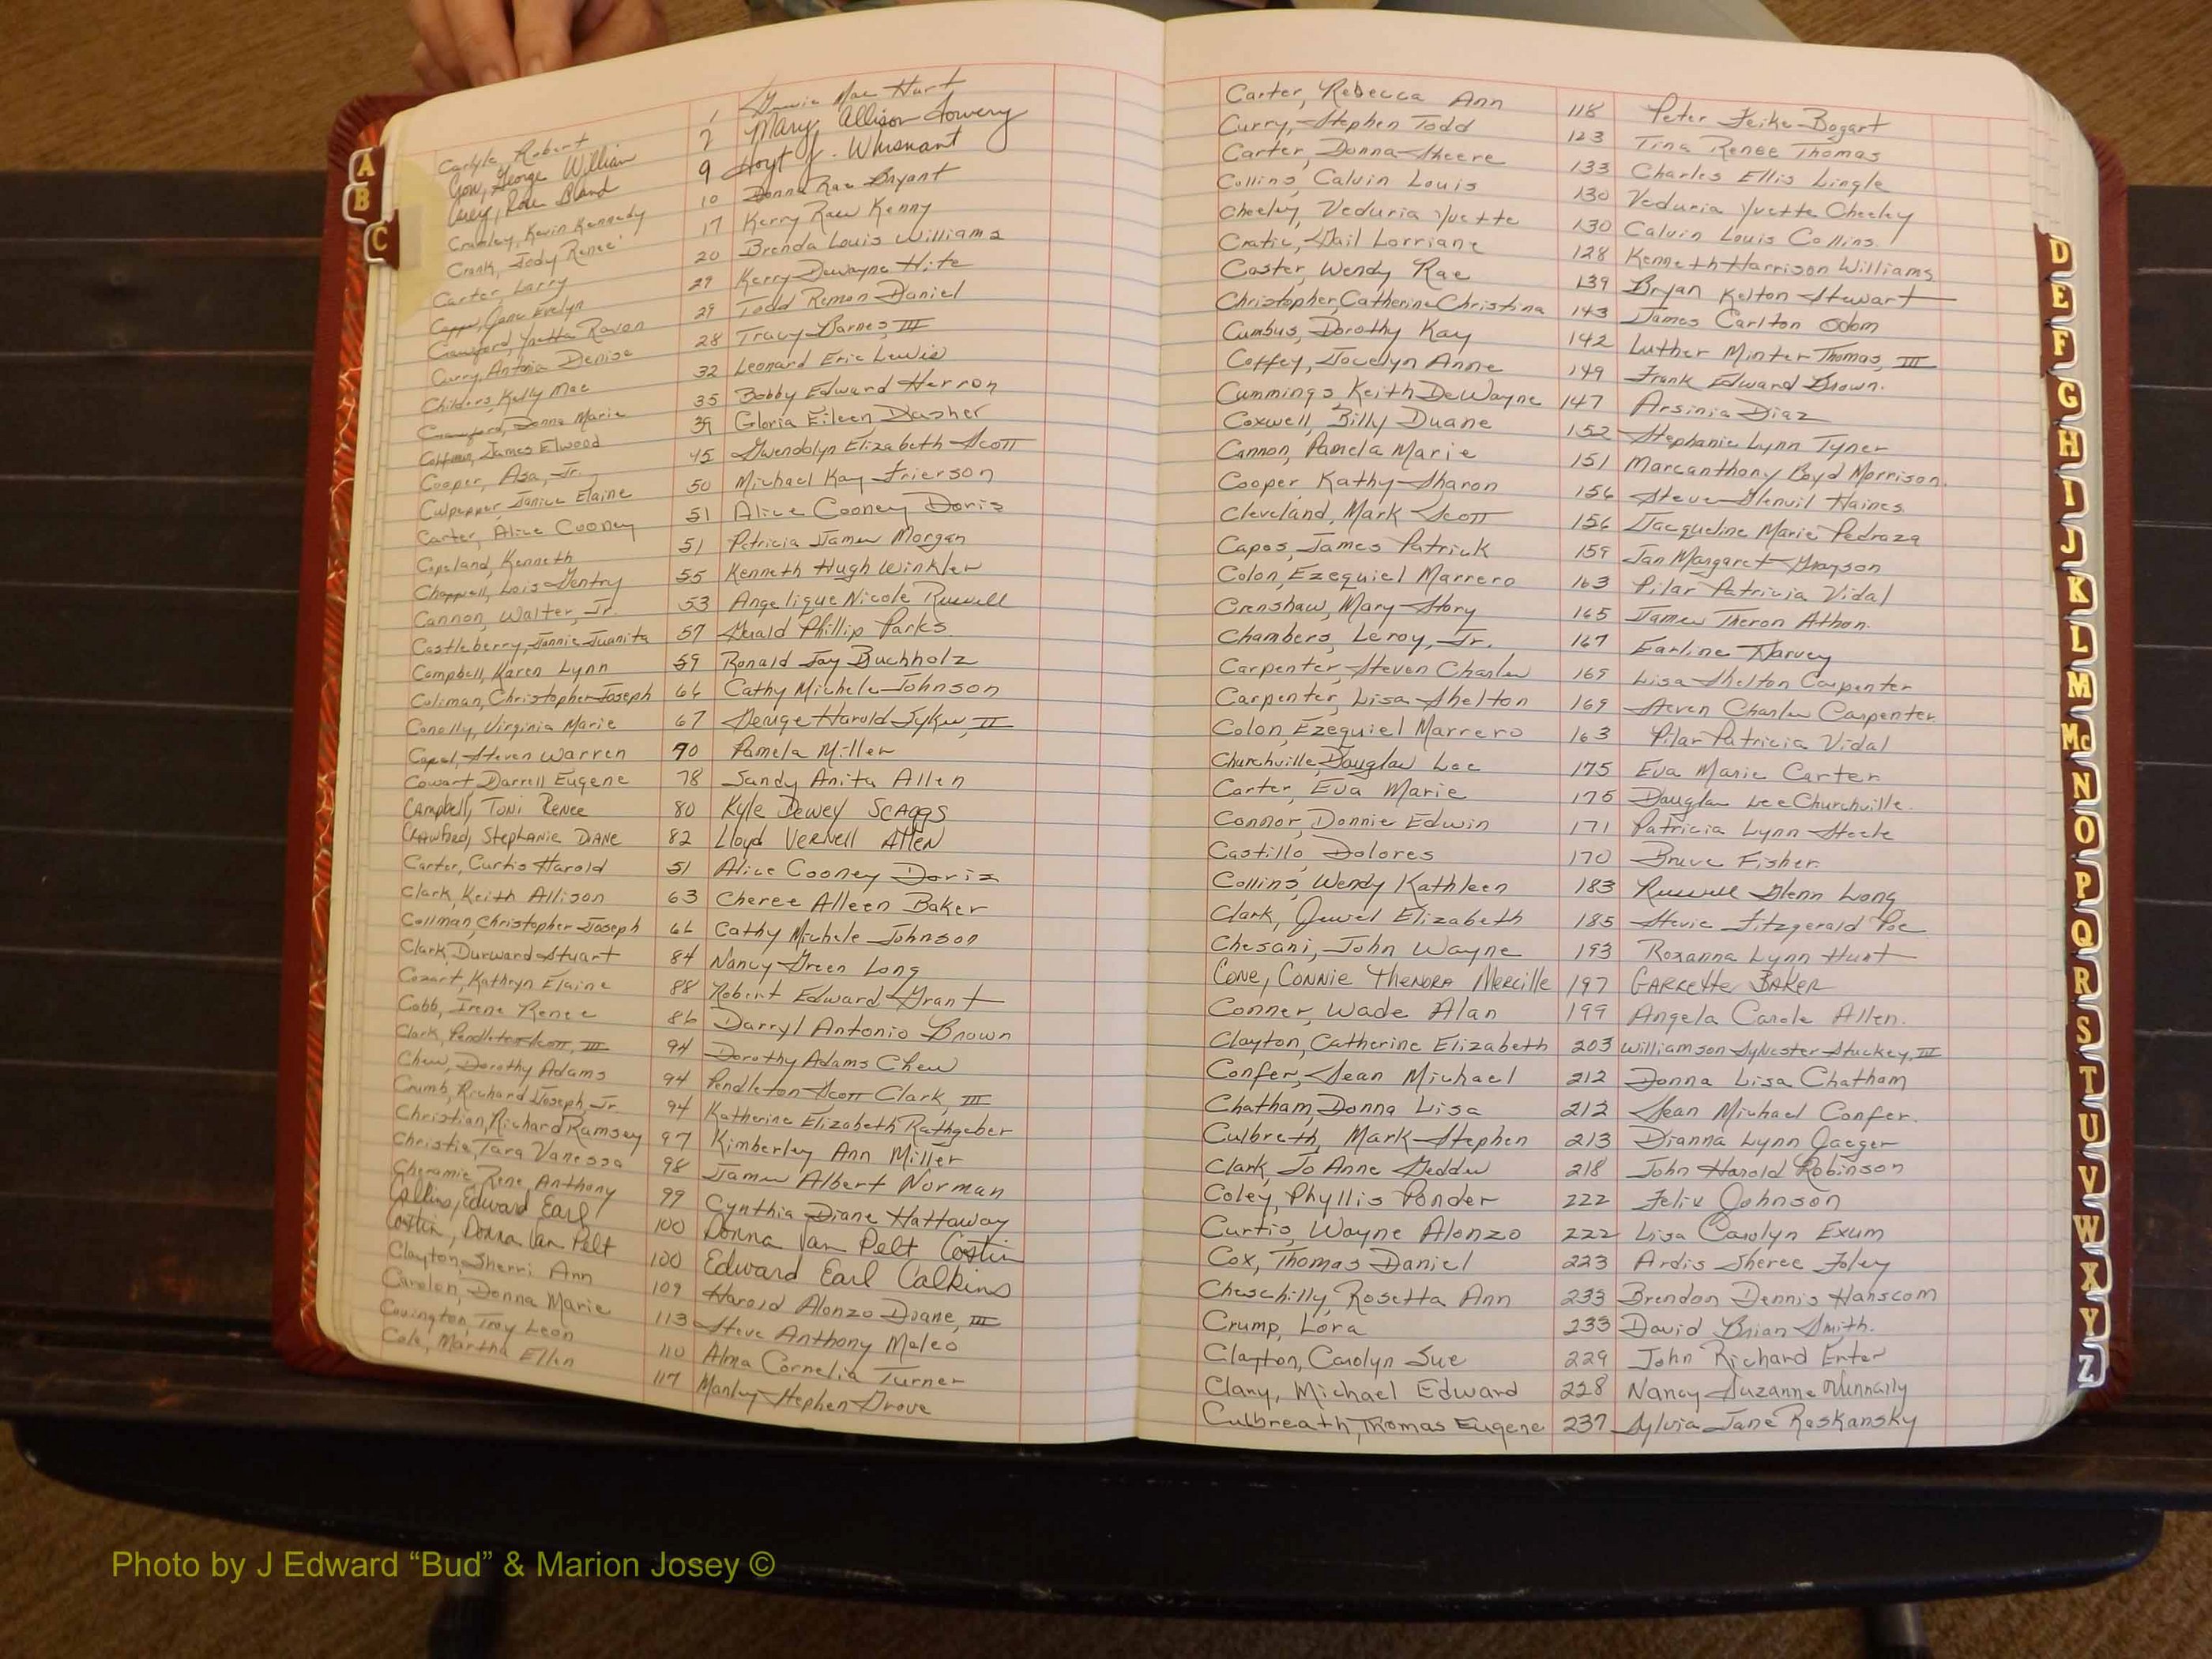 Carlyle, Robert 1 Mae Hart
George William 2 Mary Allison Lowery
Rose Bland 9 Hoyt J. Whisnant
Crawley, Kevin Kennedy 10 Donna Rae Bryant
Crank, Jody Renee' 17 Kerry Raw Kenny
Carter, Larry 20 Brenda Louis Williams
Capps, Jane Evelyn 27 Kerry Dewayne Hite
Crawford, Yvetta Ravon 29 Todd Remon Daniel
Curry, Antonia Denise 28 Tracy Barnes, III
Childers, Kelly Mae 32 Leonard Eric Lewis
Crawford, Donna Marie 35 Bobby Edward Herron
Coffman, James Elwood 39 Gloria Eileen Dasher
Cooper, Asa, Jr. 45 Gwendolyn Elizabeth Scott
Culpepper, Janice Elaine 50 Michael Kay Frierson
Carter, Alice Cooney 51 Alice Cooney Doris
Copeland, Kenneth 51 Patricia James Morgan
Chappell, Lois Gentry 55 Kenneth Hugh Winkler
Cannon, Walter, Jr. 53 Angelique Nicole Russell
Castleberry, Jannie Juanita 57 Gerald Phillip Parks
Campbell, Karen Lynn 59 Ronald Jay Buchholz
Coliman, Christopher Joseph 66 Cathy Michele Johnson
Conolly, Virginia Marie 67 George Harold Sykes, II
Capel, Steven Warren 70 Pamela Miller
Cowart, Darrell Eugene 78 Sandy Anita Allen
Campbell, Toni Renee 80 Kyle Dewey Scaggs
Crawford, Stephanie Diane 82 Lloyd Vernell Allen
Carter, Curtis Harold 51 Alice Cooney Doris
Clark, Keith Allison 63 Cheree Alleen Baker
Collman, Christopher Joseph 66 Cathy Michele Johnson
Clark, Durward Stuart 84 Nancy Green Long
Cozart, Kathryn Elaine 88 Robert Edward Grant
Cobb, Irene Renee 86 Darryl Antonio Brown
Clark, Pendleton Scott, III 94 Dorothy Adams Chew
Chew, Dorothy Adams 94 Pendleton Scott Clark, III
Crumb, Richard Joseph, Jr. 94 Katherine Elizabeth Rathgeber
Christian, Richard Ramsey 97 Kimberley Ann Miller
Christie, Tara Vanessa 98 James Albert Norman
Cheramie, Rene Anthony 99 Cynthia Diane Hattaway
Edward Earl 100 Donna Van Pelt Costin
Costin, Donna Van Pelt 100 Edward Earl Calkins
Clayton, Sherri Ann 109 Harold Alonzo Doane, III
Carolon, Donna Marie 113 Steve Anthony Maleo
Covington, Troy Leon 110 Alma Cornelia Turner
Cole, Martha Ellen 117 Manley Stephen Grove
Carter, Rebecca Ann 118 Peter Feike Bogart
Curry, Stephen Todd 123 Tina Renee Thomas
Carter, Donna Sheere 133 Charles Ellis Lingle
Collins, Calvin Louis 130 Veduria Yvette Cheeley
Cheeley, Veduria Yvette 130 Calvin Louis Collins.
Cratic, Gail Lorriane 128 Kenneth Harrison Williams
Caster, Wendy Rae 139 Bryan Kelton Stewart
Christopher, Catherine Christina 143 James Carlton Odom
Cumbus, Dorothy Kay 142 Luther Minter Thomas, III
Coffey, Jocelyn Anne 149 Frank Edward Brown.
Cummings, Keith DeWayne 147 Arsinia Diaz
Coxwell, Billy Duane 152 Stephanie Lynn Tyner
Cannon, Pamela Marie 151 Marcanthony Boyd Morrison.
Cooper, Kathy Sharon 156 Steve Glenvil Haines
Cleveland, Mark Scott 156 Jacqueline Marie Pedraza
Capos, James Patrick 159 Jan Margaret Grayson
Colon, Ezequiel Marrero 163 Pilar Patricia Vidal
Crenshaw, Mary Story 165 James Theron Athon.
Chambers, Leroy, Jr. 167 Earline Harvey
Carpenter, Steven Charles 169 Lisa Shelton Carpenter
Carpenter, Lisa Shelton 169 Steven Charles Carpenter.
Colon, Ezequiel Marrero 163 Pilar Patricia Vidal
Churchville, Douglas Lee 175 Eva Marie Carter
Carter, Eva Marie 175 Douglas Lee Churchville.
Connor, Donnie Edwin 171 Patricia Lynn Steele
Castillo, Dolores 170 Bruce Fisher.
Collins, Wendy Kathleen 183 Russell Glenn Long
Clark, Jewel Elizabeth 185 Stevie Fitzgerald Poe
Chesani, John Wayne 193 Roxanna Lynn Hunt
Cone, Connie Thendra Nercille 197 Garrette Baker
Conner, Wade Alan 199 Angela Carole Allen.
Clayton, Catherine Elizabeth 203 Williamson Sylvester Stuckey, III
Confer, Sean Michael 212 Donna Lisa Chatham
Chatham, Donna Lisa 212 Sean Michael Confer.
Culbreth, Mark Stephen 213 Dianna Lynn Jaeger
Clark, Jo Anne Geddes 218 John Harold Robinson
Coley, Phyllis Ponder 222 Felix Johnson
Curtis, Wayne Alonzo 222 Lisa Carolyn Exum
Cox, Thomas Daniel 223 Ardis Sheree Foley
Cheschilly, Rosetta Ann 233 Brendon Dennis Hanscom
Crump, Lora 233 David Brian Smith.
Clayton, Carolyn Sue 229 John Richard Enter
Clany, Michael Edward 228 Nancy Suzanne Nunnally
Culbreath, Thomas Eugene 237 Sylvia Jane Raskansky
A
B
C
D
E
F
G
H
I
J
K
L
M
Mc
N
O
P
Q
R
S
T
U
V
W
X
Y
Z
Photo by J Edward “Bud” & Marion Josey ©